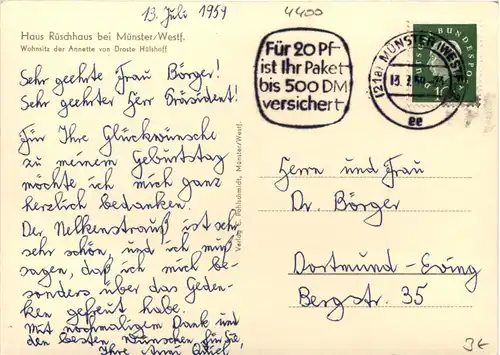 13. Juli 1959
4400
Haus Rüschhaus bei Münster/Westf.
Wohnsitz der Annette von Droste Hülshoff
Sehr geehrte Frau Börger!
Sehr geehrter Herr Präsident!
Für Ihre Glückwünsche
zu meinem Geburtstag
möchte ich mich ganz
herzlich bedanken.
Der Nelkenstrauß ist sehr
sehr schön, und ich muß
sagen, daß ich mich be-
sonders über das Geden-
ken gefreut habe.
Mit nochmaligem Dank und
den besten Wünschen für Sie,
Ihre
Verlag C. Pohlschmidt, Münster/Westf.
Für 20 Pf
ist Ihr Paket
bis 500 DM
versichert
(21a) MÜNSTER (WESTF)
13.7.
ee
BUNDESPOST
Herrn und Frau
Dr. Börger
Dortmund-Eving
Bergstr. 35
3€